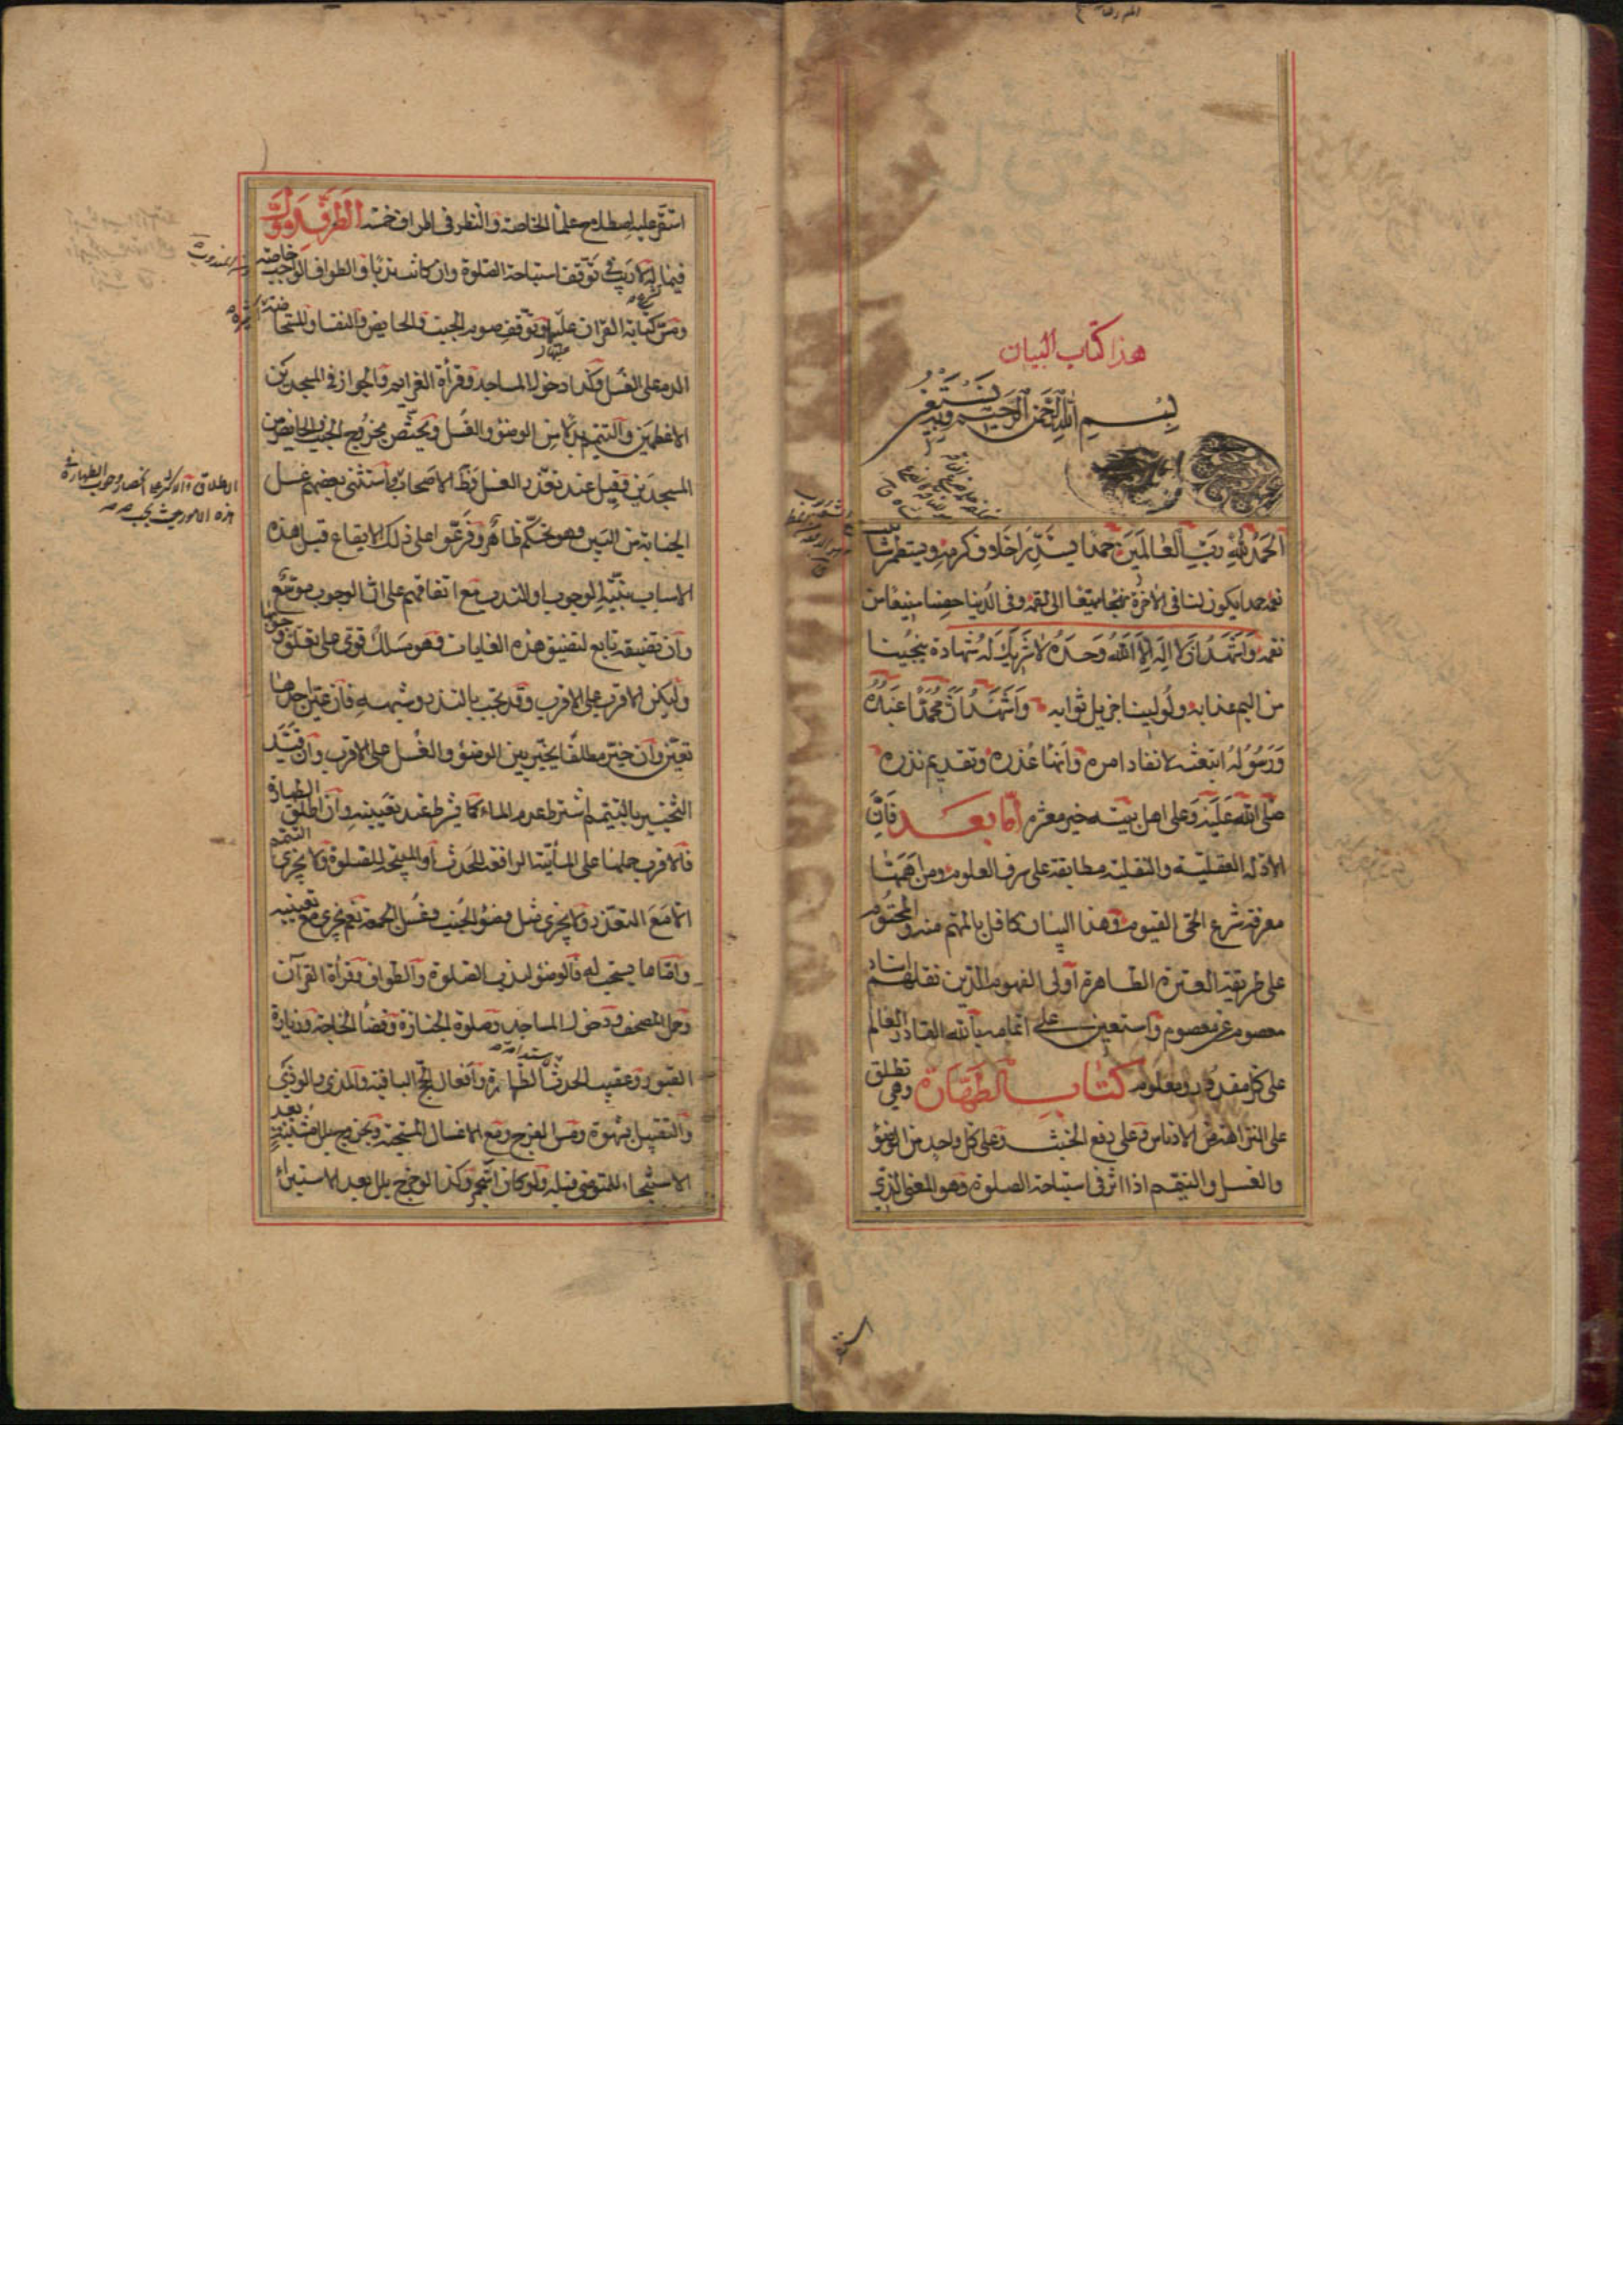 هذا كتاب البيان
بسم الله الرحمن الرحيم وبه نستعين
الحمد لله رب العالمين حمدا يستدر اخلاف كرمه ويستمطر شابيب
نعمه حمدا يكون لنا في الاخرة منهجا متبعا الى نعمه وفي الدنيا حصنا منيعا من
نقمه واشهد ان لا اله الا الله وحده لا شريك له شهادة ينجينا
من اليم عذابه ولولينا جزيل ثوابه واشهد ان محمدا عبده
ورسوله ابتعثه لانفاد امره وانهاء عذره وتقديم نذره
صلى الله عليه وعلى اهل بيته خير معشره اما بعد فان
الادلة العقلية والنقلية مطابقة على شرف العلوم ومن اهمها
معرفة شرع الحي القيوم وهذا البيان كافل بالمهم منه والمحتوم
على طريقة العترة الطاهرة اولى الفهوم الذين نقلهم اسناد
معصوم عن معصوم واستعين على اتمامه بالله القادر العالم
على كل مقدور ومعلوم كتاب الطهارة وهي تطلق
على النزاهة من الادناس وعلى رفع الخبث وعلى كل واحد من الوضوء
والغسل والتيمم اذا اثر في استباحة الصلوة وهو المعنى الذي
استقر عليه اصطلاح علماء الخاصة والنظر في اطراف خمسة الطرف الاول
فيما له لا ريب في توقف استباحة الصلوة وان كانت ندبا والطواف الواجب خاصة
ومس كتابة القران عليها وتوقف صوم الجنب والحايض والنفساء والمستحاضة
الدم على الغسل وكذا دخول المساجد وقرأة العزايم والجواز في المسجدين
الاعظمين والتيمم بدلا من الوضوء والغسل ويختص بخروج الجنب والحايض من
المسجدين وقيل عند تعذر الغسل وظ الاصحاب واستثنى بعضهم غسل
الجنابة من البين وهو تحكم ظاهر وفرعوا على ذلك الايقاع قبل هذه
الاسباب بنية الوجوب او الندب مع اتفاقهم على ان الوجوب موسع
وان تضيقه تابع لتضيق هذه الغايات فهو مسلك قوي على تعلق
وليكن الاقرب على الاقرب وقد تجب بالنذر وشبهه فان عين احدها
تعين وان خير مطلقا يخير بين الوضوء والغسل على الاقرب وان قيد
التخيير بالتيمم اشترط عدم الماء كما يشترط عند تعيينه وان اطلق الطهارة
فالاقرب حملها على المائية الرافعة للحدث او المبيحة للصلوة ولا يجزي التيمم
الا مع التعذر ولا يجزي مثل وضوء الجنب وغسل الجمعة نعم يجزي مع تعيينه
واما ما يستحب له فالوضوء لندب الصلوة والطواف وقرأة القرآن
وحمل المصحف ودخول المساجد وصلوة الجنازة وقضاء الحاجة وزيارة
القبور وعقيب الحدث الطهارة وافعال الحج الباقية والمذي والوذي
والتقبيل بشهوة ومس الفرج ومع الاغسال المستحبة وبخروج بلل مشتبه بعد
الاستنجاء للمتوضي قبله ولو كان استجمر وكذا لو خرج بلل بعد الاستبراء